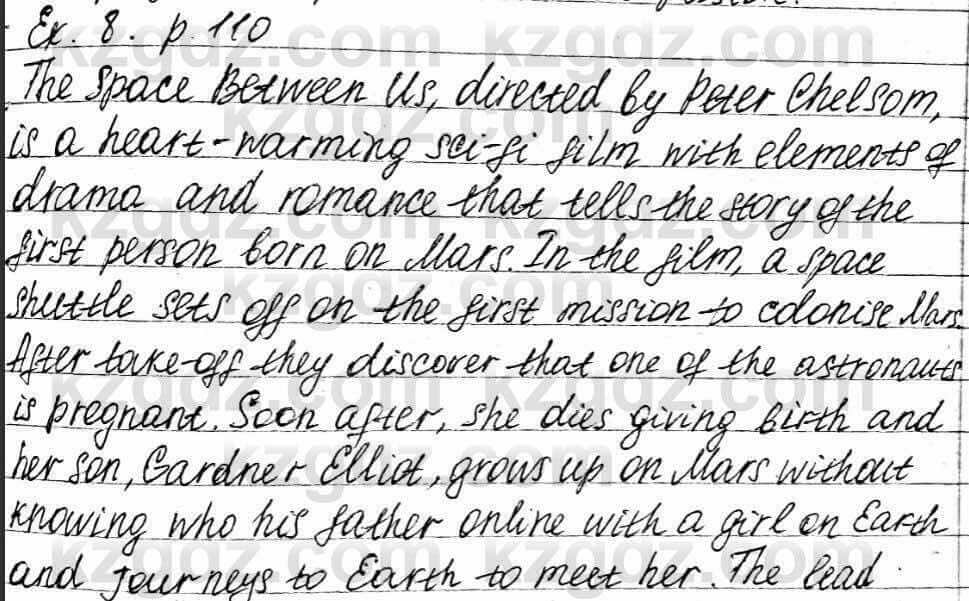 Ex. 8. p. 110
The Space Between Us, directed by Peter Chelsom,
is a heart-warming sci-fi film with elements of
drama and romance that tells the story of the
first person born on Mars. In the film, a space
shuttle sets off on the first mission to colonise Mars.
After take-off they discover that one of the astronauts
is pregnant. Soon after, she dies giving birth and
her son, Gardner Elliot, grows up on Mars without
knowing who his father online with a girl on Earth
and journeys to Earth to meet her. The lead
kzgdz.com